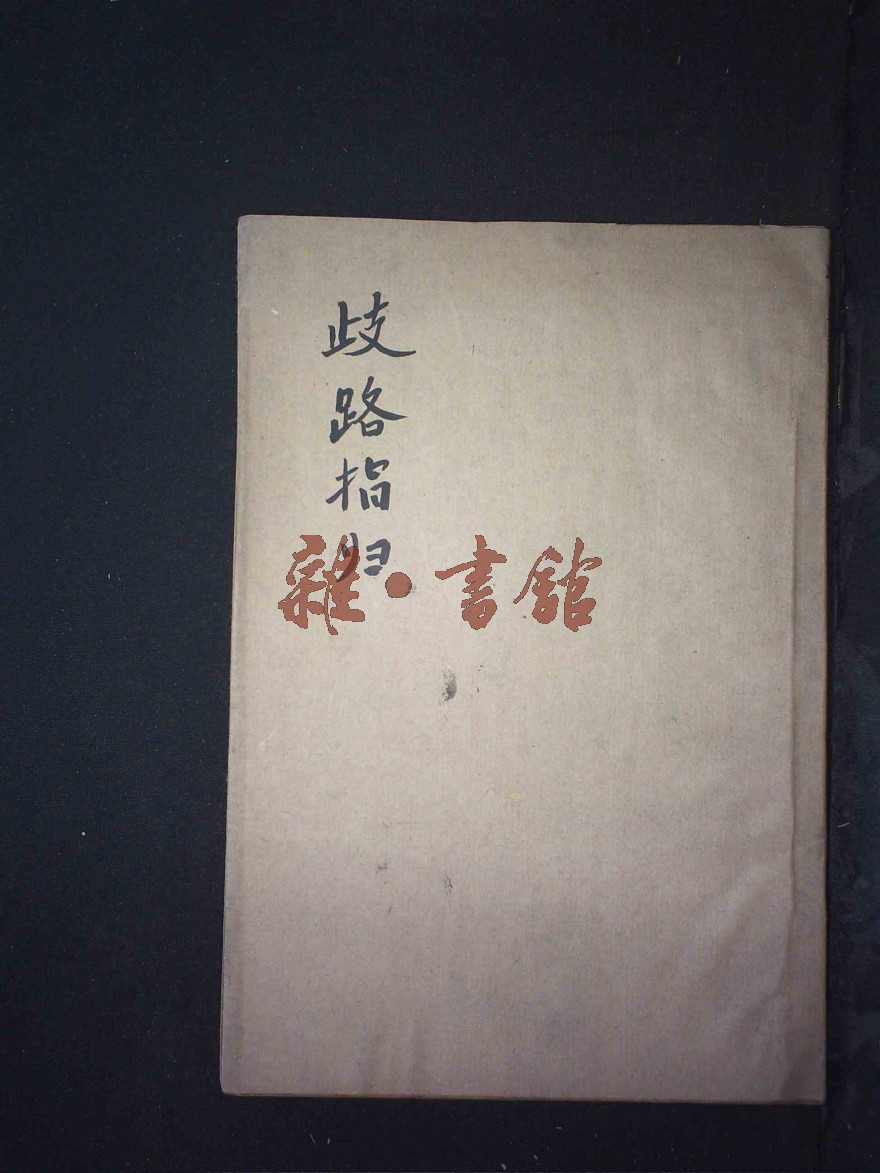 歧路指归
雜·書館